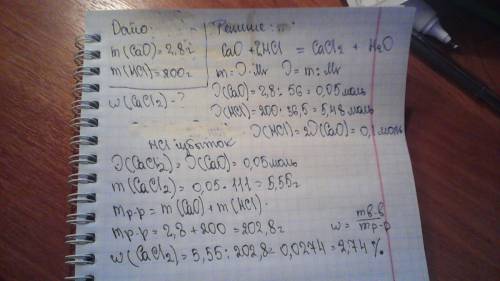 Дано:
m(CaO)=2,8г
m(HCl)=200г
w(CaCl2)-?
Решение:
CaO + 2HCl = CaCl2 + H2O
m=ϑ·Mr ϑ=m:Mr
ϑ(CaO)=2,8:56=0,05моль
ϑ(HCl)=200:36,5=5,48моль
ϑ(HCl)=2ϑ(CaO)=0,1моль
HCl избыток
ϑ(CaCl2)=ϑ(CaO)=0,05моль
m(CaCl2)=0,05·111=5,55г
mр-р=m(CaO)+m(HCl)
mр-р=2,8+200=202,8г
w=mв-в/mр-р
w(CaCl2)=5,55:202,8=0,0274=2,74%